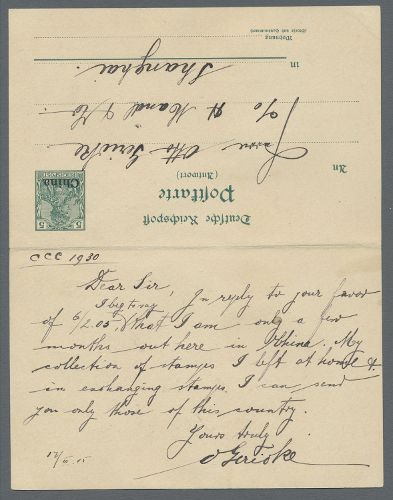 Deutsche Reichspost
Postkarte
(Antwort)
China
5
5
An
Herrn Otto Gericke
c/o H. Mandl & Co
in Shanghai.
Wohnung
CCC 1930
Dear Sir,
I beg to say
In reply to your favor
of 6/2.05, that I am only a few
months out here in China. My
collection of stamps I left at home &
in exchanging stamps I can send
you only those of this country.
Yours truly
O Gericke